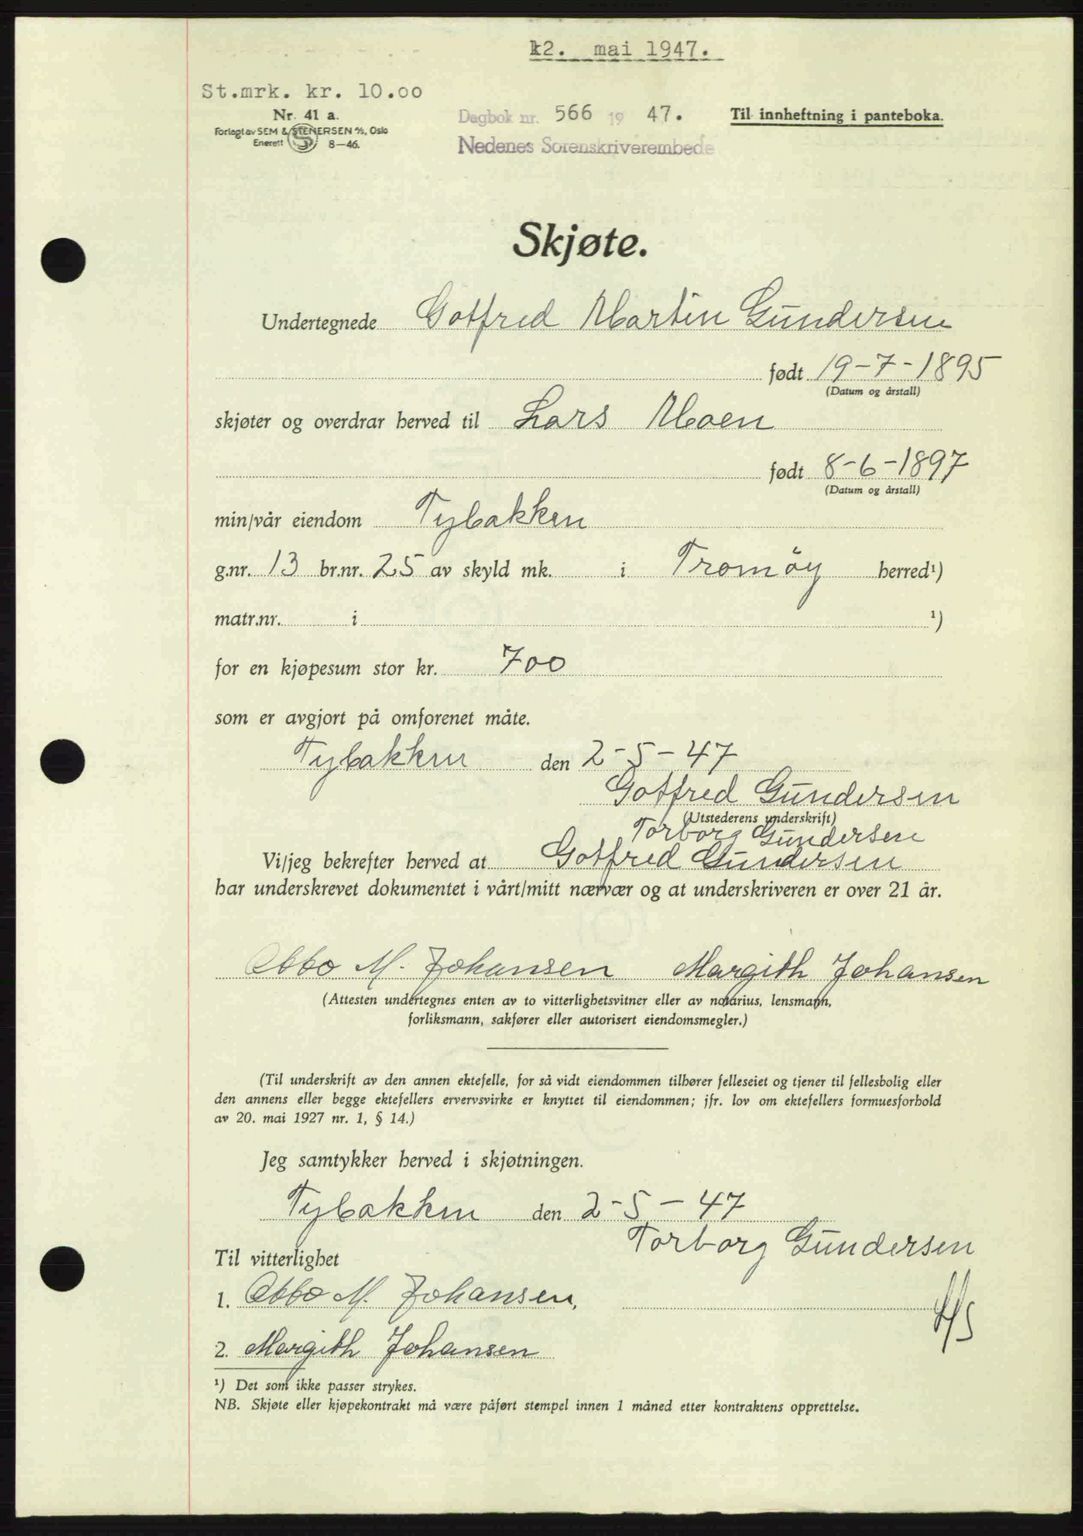 12. mai 1947.
St.mrk. kr. 10.00
Nr. 41 a.
Forlagt av SEM & STENERSEN A/S, Oslo
Enerett S 8—46.
Dagbok nr. 566 19 47.
Nedenes Sorenskriverembede
Til innheftning i panteboka.
Skjøte.
Undertegnede Gotfred Martin Gundersen
født 19-7-1895
(Datum og årstall)
skjøter og overdrar herved til Lars Moen
født 8-6-1897
(Datum og årstall)
min/vår eiendom Tybakken
g.nr. 13 br.nr. 25 av skyld mk. i Tromöy herred¹)
matr.nr. i ¹)
for en kjøpesum stor kr. 700
som er avgjort på omforenet måte.
Tybakken den 2-5-47
Gotfred Gundersen
(Utstederens underskrift)
Torborg Gundersen
Vi/jeg bekrefter herved at Gotfred Gundersen
har underskrevet dokumentet i vårt/mitt nærvær og at underskriveren er over 21 år.
Otto M. Johansen Margith Johansen
(Attesten undertegnes enten av to vitterlighetsvitner eller av notarius, lensmann,
forliksmann, sakfører eller autorisert eiendomsmegler.)
(Til underskrift av den annen ektefelle, for så vidt eiendommen tilhører felleseiet og tjener til fellesbolig eller
den annens eller begge ektefellers ervervsvirke er knyttet til eiendommen; jfr. lov om ektefellers formuesforhold
av 20. mai 1927 nr. 1, § 14.)
Jeg samtykker herved i skjøtningen.
Tybakken den 2-5-47
Torborg Gundersen
Til vitterlighet
1. Otto M. Johansen,
2. Margith Johansen
¹) Det som ikke passer strykes.
NB. Skjøte eller kjøpekontrakt må være påført stempel innen 1 måned etter kontraktens opprettelse.